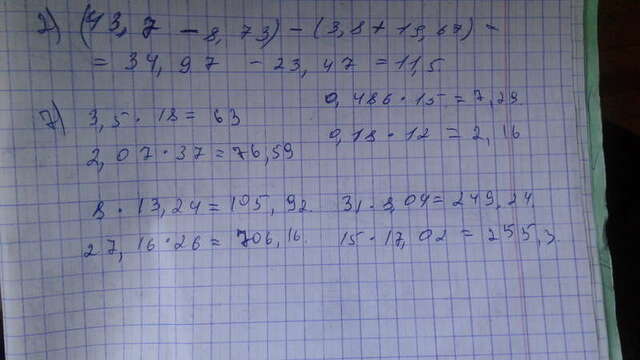 2) (43,7 - 8,73) - (3,8 + 19,67) -
= 34,97 - 23,47 = 11,5
7) 3,5 · 18 = 63
0,486 · 15 = 7,29
2,07 · 37 = 76,59
0,18 · 12 = 2,16
8 · 13,24 = 105,92
31 · 8,04 = 249,24.
27,16 · 26 = 706,16.
15 · 17,02 = 255,3.